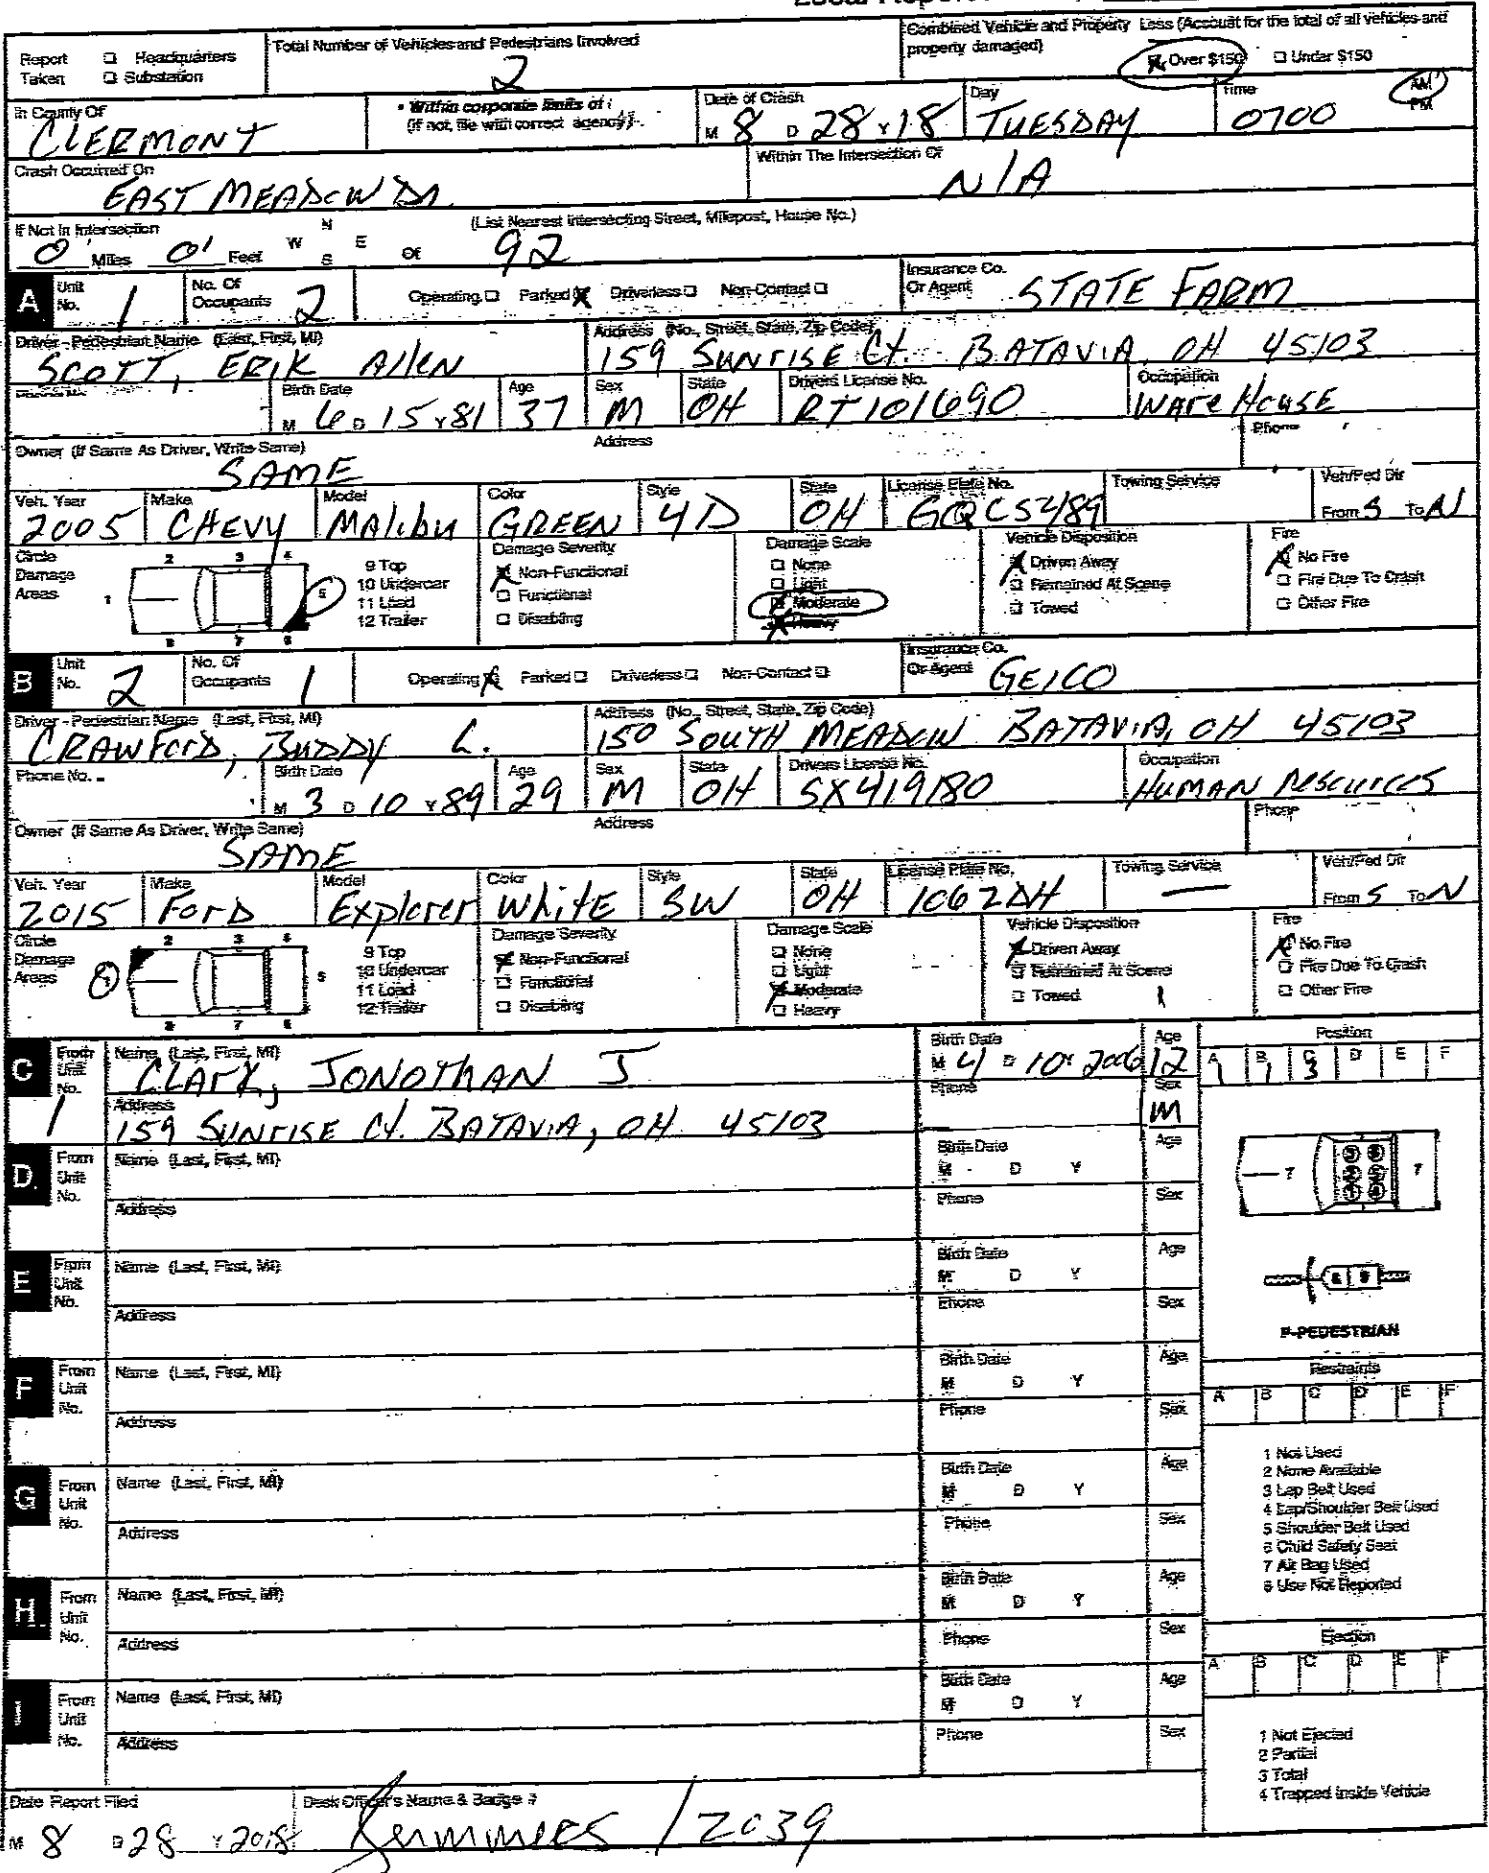 Combined Vehicle and Property Loss (Account for the total of all vehicles and
property damaged)
Report Taken ☐ Headquarters ☐ Substation
Total Number of Vehicles and Pedestrians Involved
2
☒ Over $150 ☐ Under $150
In County Of
CLERMONT
• Within corporate limits of:
(if not, file with correct agency)
Date of Crash
M 8 D 28 Y 18
Day
TUESDAY
Time
0700
AM
PM
Crash Occurred On
EAST MEADOW DR.
Within The Intersection Of
N/A
If Not In Intersection
0' Miles 0' Feet N W E S Of
(List Nearest Intersecting Street, Milepost, House No.)
92
A Unit No. 1
No. Of Occupants 2
Operating ☐ Parked ☒ Driverless ☐ Non-Contact ☐
Insurance Co. Or Agent STATE FARM
Driver - Pedestrian Name (Last, First, MI)
SCOTT, ERIK AllEN
Address (No., Street, State, Zip Code)
159 SUNRISE Ct. BATAVIA, OH 45103
Birth Date
M 6 D 15 Y 81
Age
37
Sex
M
State
OH
Drivers License No.
RT101690
Occupation
WAREHOUSE
Owner (If Same As Driver, Write Same)
SAME
Address
Phone
Veh. Year
2005
Make
CHEVY
Model
Malibu
Color
GREEN
Style
4D
State
OH
License Plate No.
Towing Service
Veh/Ped Dir
From S To N
Circle Damage Areas
1 2 3 4 5 6 7 8
9 Top
10 Undercar
11 Load
12 Trailer
Damage Severity
☒ Non-Functional
☐ Functional
☐ Disabling
Damage Scale
☐ None
☐ Light
☒ Moderate
☒ Heavy
Vehicle Disposition
☒ Driven Away
☐ Remained At Scene
☐ Towed
Fire
☒ No Fire
☐ Fire Due To Crash
☐ Other Fire
B Unit No. 2
No. Of Occupants 1
Operating ☒ Parked ☐ Driverless ☐ Non-Contact ☐
Insurance Co. Or Agent GEICO
Driver - Pedestrian Name (Last, First, MI)
CRAWFORD, BUDDY L.
Address (No., Street, State, Zip Code)
150 SOUTH MEADOW BATAVIA, OH 45103
Phone No.
Birth Date
M 3 D 10 Y 89
Age
29
Sex
M
State
OH
Drivers License No.
SX419180
Occupation
HUMAN RESOURCES
Owner (If Same As Driver, Write Same)
SAME
Address
Phone
Veh. Year
2015
Make
FORD
Model
Explorer
Color
WhitE
Style
SW
State
OH
License Plate No.
1062DH
Towing Service
—
Veh/Ped Dir
From S To N
Circle Damage Areas
1 2 3 4 5 6 7 8
9 Top
10 Undercar
11 Load
12 Trailer
Damage Severity
☒ Non-Functional
☐ Functional
☐ Disabling
Damage Scale
☐ None
☐ Light
☒ Moderate
☐ Heavy
Vehicle Disposition
☒ Driven Away
☐ Remained At Scene
☐ Towed
Fire
☒ No Fire
☐ Fire Due To Crash
☐ Other Fire
C From Unit No. 1
Name (Last, First, MI)
CLARK, JONOTHAN J
Birth Date
M 4 D 10 Y 2006
Age
12
Address
159 SUNRISE Ct. BATAVIA, OH 45103
Phone
Sex
M
Position
A B C D E F
1 1 3
D From Unit No.
Name (Last, First, MI)
Birth Date
M D Y
Age
Address
Phone
Sex
E From Unit No.
Name (Last, First, MI)
Birth Date
M D Y
Age
Address
Phone
Sex
P-PEDESTRIAN
F From Unit No.
Name (Last, First, MI)
Birth Date
M D Y
Age
Address
Phone
Sex
Restraints
A B C D E F
1 Not Used
2 None Available
3 Lap Belt Used
4 Lap/Shoulder Belt Used
5 Shoulder Belt Used
6 Child Safety Seat
7 Air Bag Used
8 Use Not Reported
G From Unit No.
Name (Last, First, MI)
Birth Date
M D Y
Age
Address
Phone
Sex
H From Unit No.
Name (Last, First, MI)
Birth Date
M D Y
Age
Address
Phone
Sex
Ejection
A B C D E F
1 Not Ejected
2 Partial
3 Total
4 Trapped Inside Vehicle
I From Unit No.
Name (Last, First, MI)
Birth Date
M D Y
Age
Address
Phone
Sex
Date Report Filed
M 8 D 28 Y 2018
Desk Officer's Name & Badge #
/ 2039